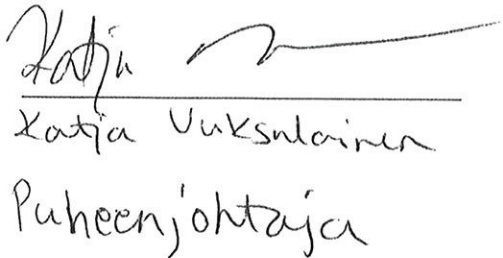 Katja
Katja Vuksalainen
Puheenjohtaja